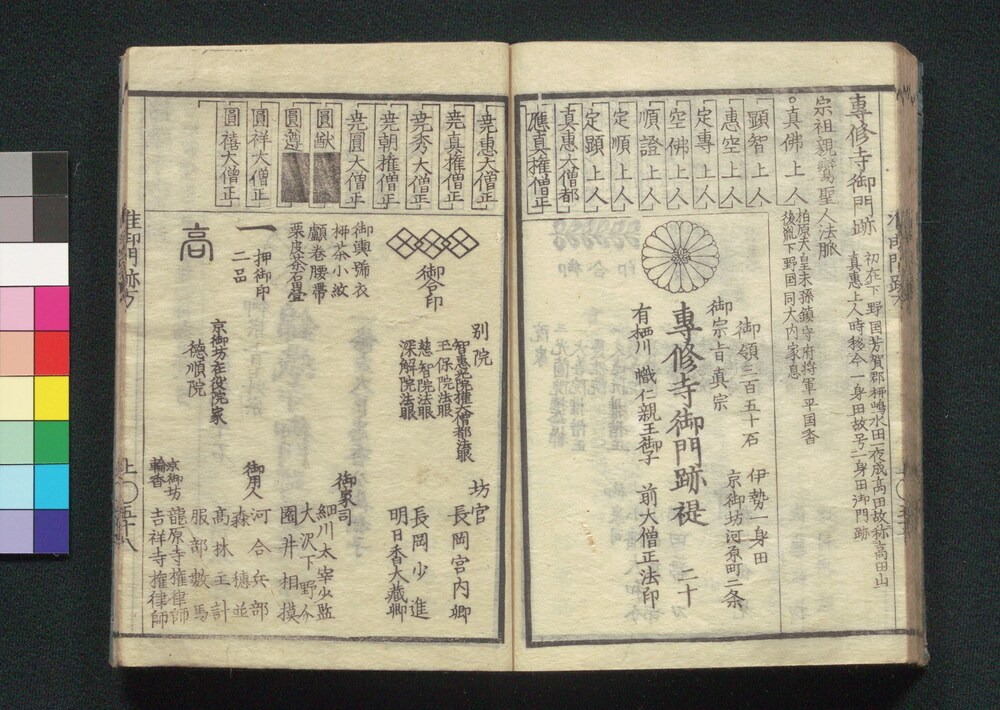 專修寺御門跡
初在下野国芳賀郡柳嶋水田一夜成高田故称高田山
真惠上人時移今一身田故号一身田御門跡
宗祖親鸞聖人法脈
真佛上人
柏原天皇末孫鎮守府将軍平国香
後胤下野国同大内家息
顕智上人
惠空上人
定專上人
空佛上人
順證上人
定順上人
定顕上人
真惠大僧都
應真権僧正
御領三百五十石
伊勢一身田
御宗旨真宗
京御坊河原町二条
專修寺御門跡禔
二十
有栖川幟仁親王御子
前大僧正法印
尭惠大僧正
尭真権僧正
尭秀大僧正
尭朝権僧正
尭圓大僧正
圓猷
圓遵
圓祥大僧正
圓禧大僧正
御合印
御輿舁衣
柿茶小紋
顱巻腰帯
栗皮茶石畳
一
押御印
二品
高
別院
智惠光院権大僧都法眼
玉保院法眼
慈智院法眼
深解院法眼
京御坊在役院家
徳順院
坊官
長岡宮内卿
長岡少進
明日香大蔵卿
御家司
細川太宰少監
大沢下野介
園井相摸
御用人
河合兵部
森徳並
高林主計
服部數馬
京御坊
輪香
龍原寺権律師
吉祥寺権律師
准御門跡方
上〇五十八